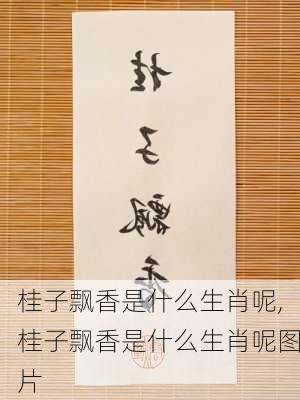 桂
子
飘
香
桂子飘香是什么生肖呢,
桂子飘香是什么生肖呢图
片